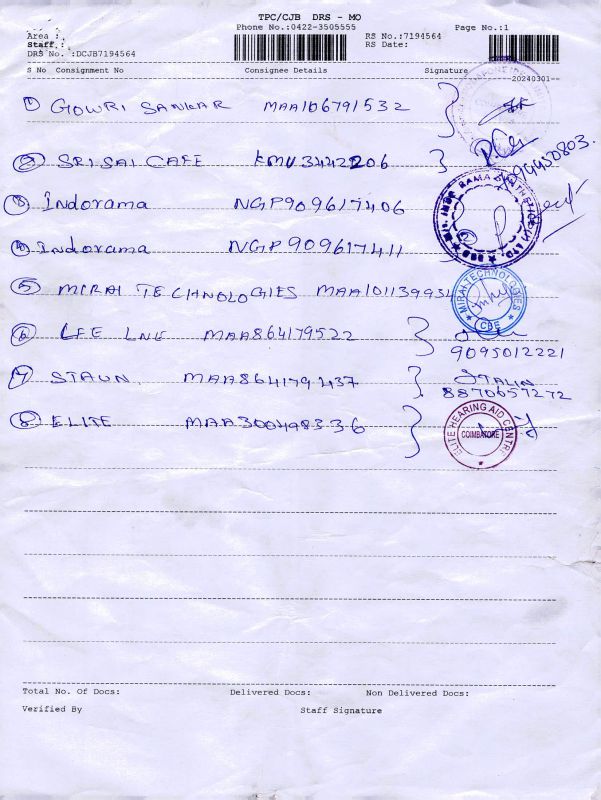 TPC/CJB DRS - MO
Phone No.:0422-3505555
Page No.:1
Area :
Staff :
DRS No. :DCJB7194564
RS No.:7194564
RS Date:
S No Consignment No Consignee Details Signature
20240301
1 GOWRI SANKAR MAA106791532
2 SRI SAI CAFE KMU3442206
3 Indorama NGP909617406
4 Indorama NGP909617411
5 MIRAI TECHNOLOGIES MAA101139934
MIRAI TECHNOLOGIES
CBE
6 LEE LNE MAA864179522
9095012221
7 STALIN MAA864179437 STALIN
8870657272
8 ELITE MAA300498336
ELITE HEARING AID CENTRE
COIMBATORE
Total No. Of Docs: Delivered Docs: Non Delivered Docs:
Verified By Staff Signature